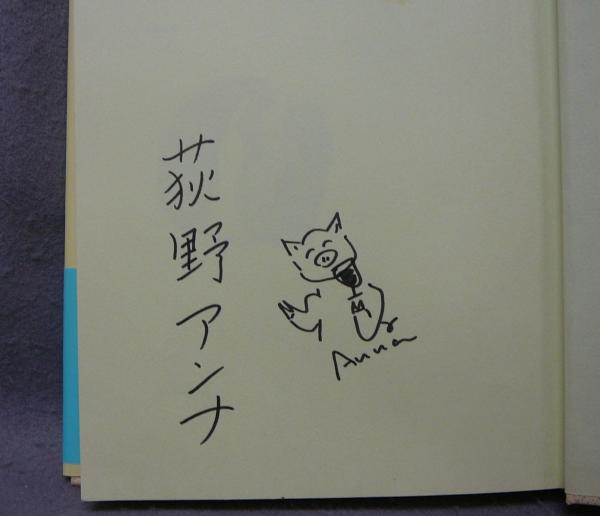 荻野アンナ
Anna